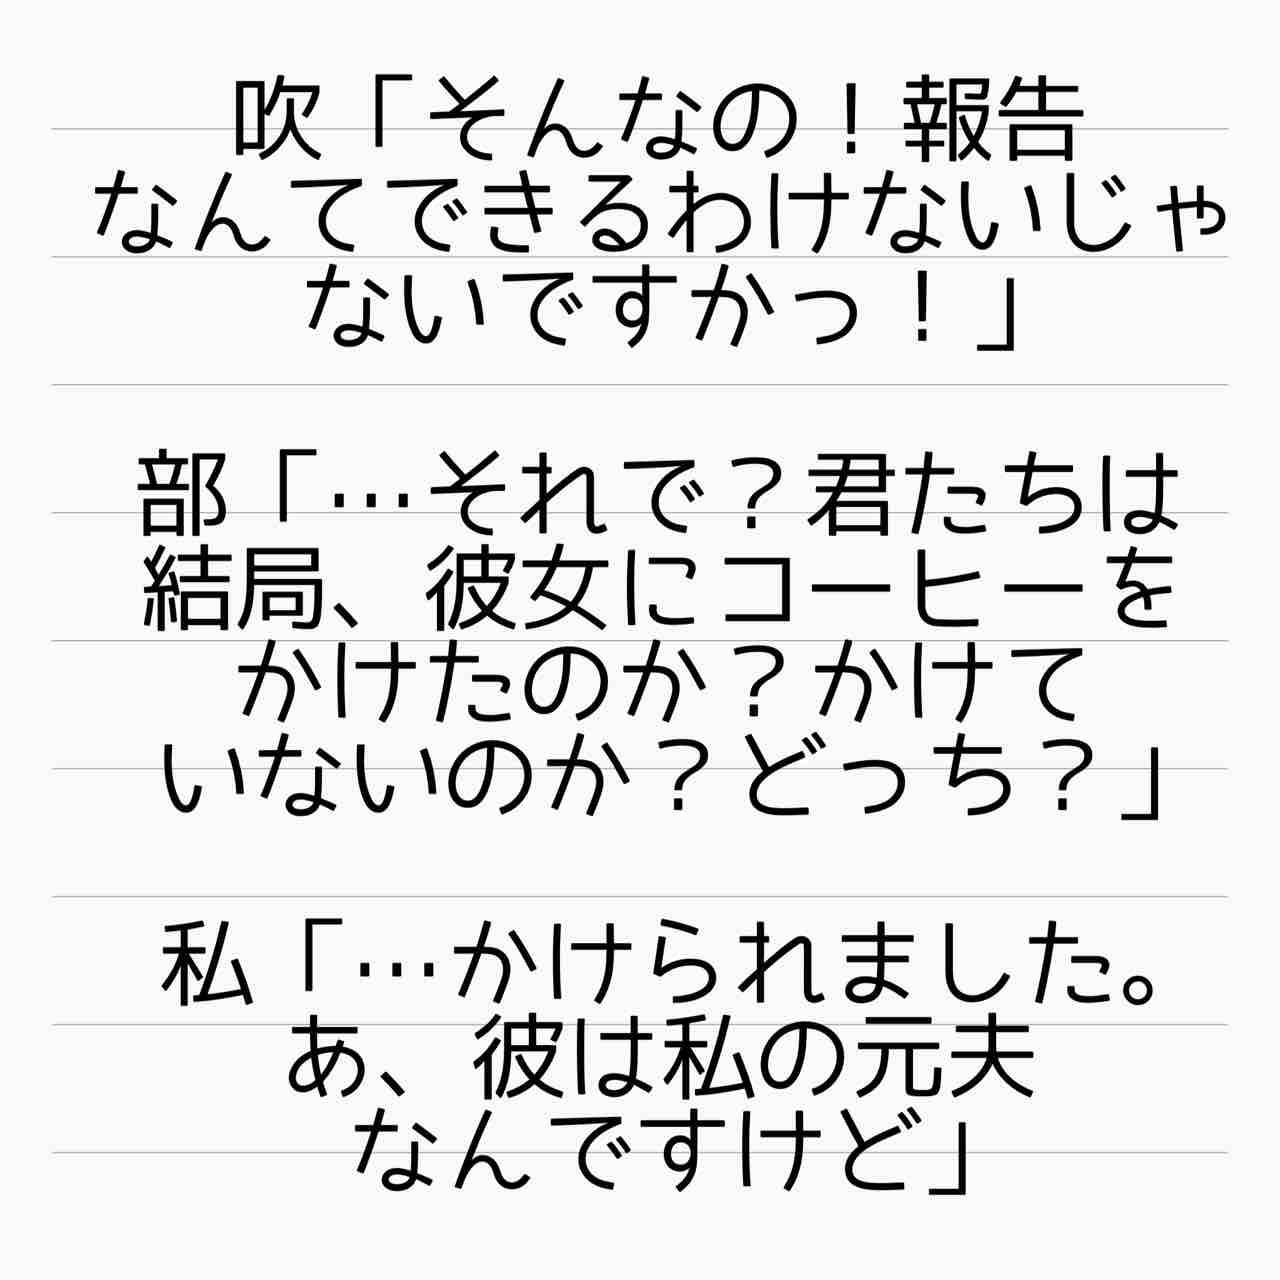 吹「そんなの！報告
なんてできるわけないじゃ
ないですかっ！」
部「…それで？君たちは
結局、彼女にコーヒーを
かけたのか？かけて
いないのか？どっち？」
私「…かけられました。
あ、彼は私の元夫
なんですけど」